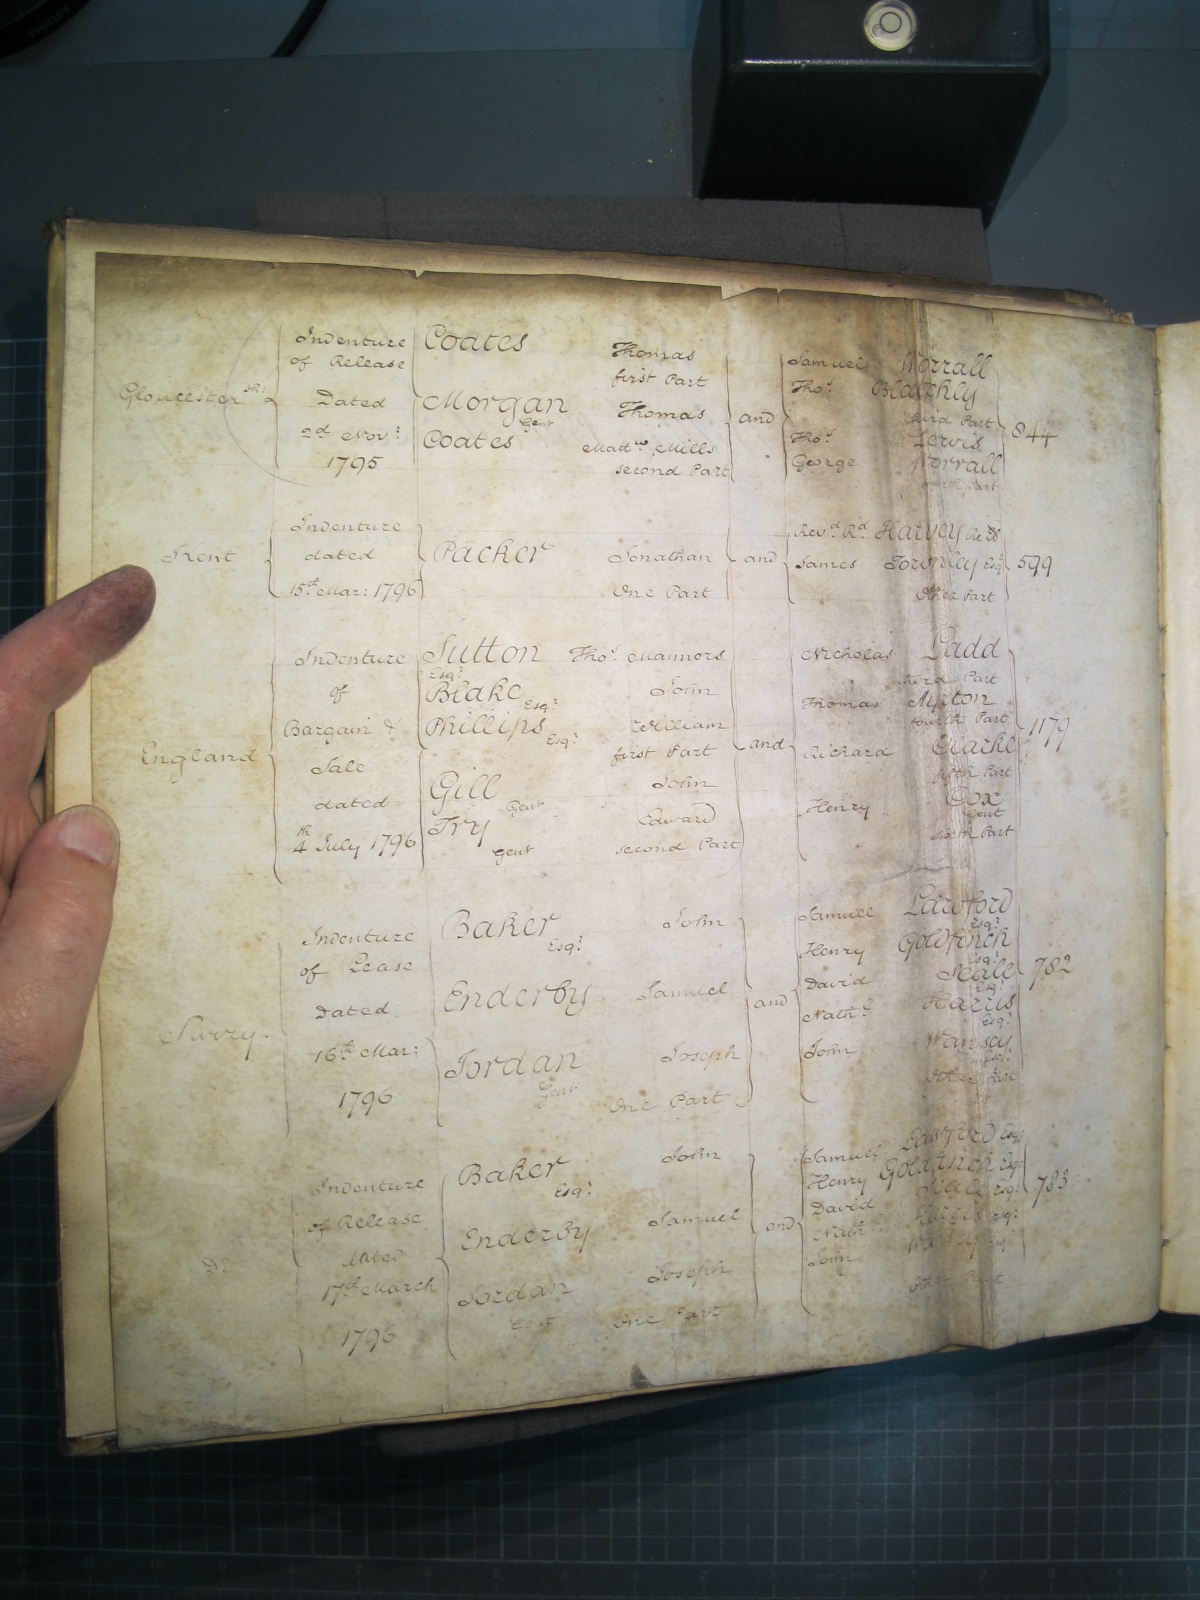 Indenture Coates Thomas Samuel Worrall
of Release first Part Tho.s Blatchly
Gloucester Sh: Dated Morgan Gent Thomas and third Part 844
2d Nov.r Coates Matt.w Mills Tho.s Jervis
1795 second Part George Worrall
fourth Part
Indenture Rev.d R.d Harvey
Kent dated Packer Jonathan and James Townley Esq.r 599
15th Mar: 1796 One Part Other Part
Indenture Sutton Esq.r Tho.s Manners Nicholas Ladd
third Part
of Blake Esq.r John Thomas Ayston
Bargain & Phillips Esq.r William fourth Part 1179
England Sale first Part and Richard Clarke
fifth Part
dated Gill Gent John Henry Cox
Gent
4th July 1796 Try Gent Edward sixth Part
second Part
Indenture Baker Esq.r John Samuel Lawford Esq.r
of Lease Henry Goldfinch Esq.r
Dated Enderby Samuel and David Seale Esq.r 782
Surry Nath.l Harris Esq.r
16th Mar: Jordan Gent Joseph John Wansey
1796 One Part Other Part
Indenture Baker Esq.r John Samuel Lawford Esq.r
of Release Henry Goldfinch Esq.r
D.o Dated Enderby Samuel and David Seale Esq.r 783
17th March Jordan Gent Joseph Nath.l Harris Esq.r
1796 One Part John Wansey
Other Part
PHILIPS